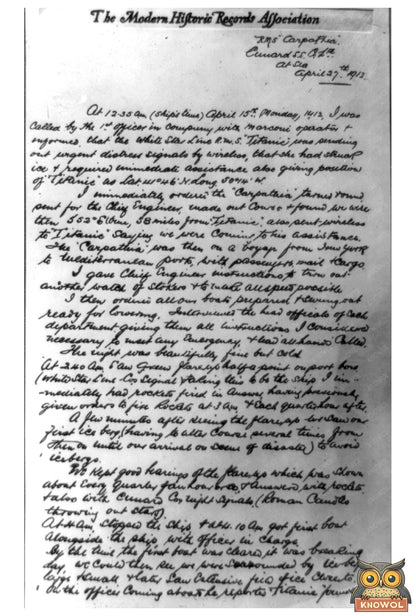 The Modern Historic Records Association
"RMS "Carpathia"
Cunard S.S. Co Ltd
At Sea
April 27th 1912
At 12.35am (Ship's time) April 15th, Monday, 1912, I was
Called by the 1st Officer in company with Marconi operator &
informed, that the White Star Line R.M.S. "Titanic" was sending
out urgent distress signals by wireless, that she had struck
ice & required immediate assistance also giving position
of "Titanic" as Lat 41°46'N Long 50°14'W.
I immediately ordered the "Carpathia" turned round
sent for the Chief Engineer, made out Course & found we were
then S52°E (true) 58 miles from "Titanic", also sent wireless
to "Titanic" saying we were coming to his assistance.
The "Carpathia" was then on a voyage from New York
to Mediterranean ports, with passengers, mail & cargo
I gave Chief Engineer instructions to turn out
another watch of stokers & to make all speed possible
I then ordered all our boats prepared & swung out
ready for lowering. Interviewed the head officials of each
department giving them all instructions I considered
necessary to meet any emergency, & had all hands Called.
The night was beautifully fine but cold
At 2.40 Am saw Green flare, half a point on port bow
(White Star Line Co's Signal) & taking this to be the ship I im-
mediately had rockets fired in answer, having previously
given orders to fire rockets at 3am & Each quarter hour after.
A few minutes after seeing the flare up we saw our
first iceberg (having to alter course several times from
then on until our arrival on scene of disaster) to avoid
icebergs.
We kept good bearings of the flare up which was shown
about Every quarter of an hour & answered with rockets
& also with Cunard Co's night signals (Roman Candles
throwing out stars).
At 4 Am, stopped the ship, & at 4.10 Am got first boat
alongside the ship with officer in charge
By the time the first boat was cleared it was breaking
day, we could then see we were surrounded by Icebergs
large & small & later saw extensive
On the officer coming aboard he reported "Titanic"
KNOWOL